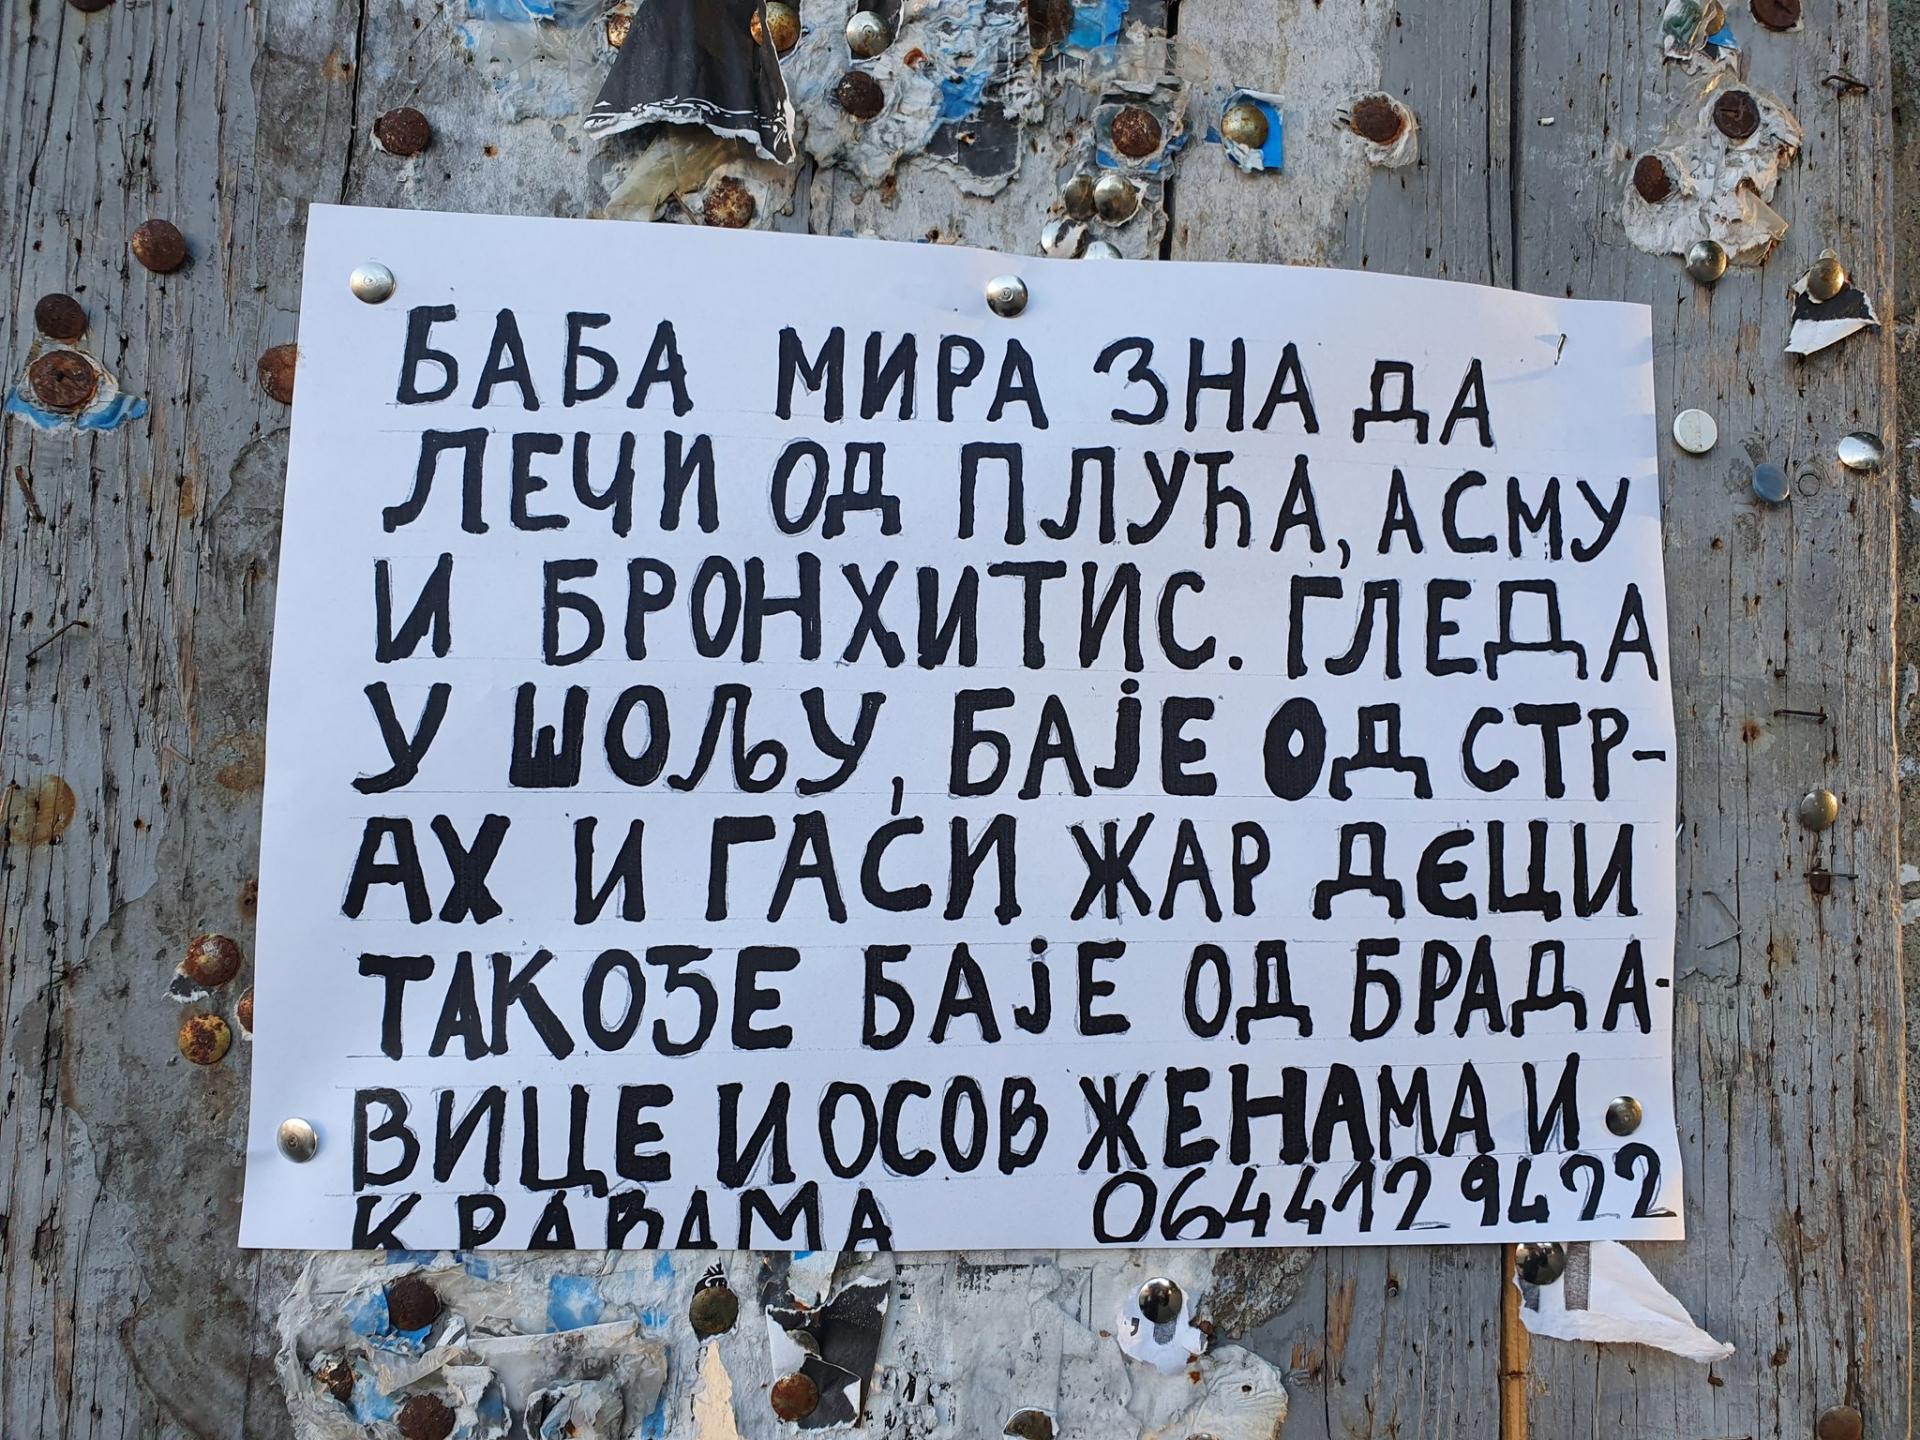 БАБА МИРА ЗНА ДА
ЛЕЧИ ОД ПЛУЋА, АСМУ
И БРОНХИТИС. ГЛЕДА
У ШОЉУ, БАЈЕ ОД СТР-
АХ И ГАСИ ЖАР ДЕЦИ
ТАКОЂЕ БАЈЕ ОД БРАДА-
ВИЦЕ И ОСОВ ЖЕНАМА И
КРАВАМА 0644129422